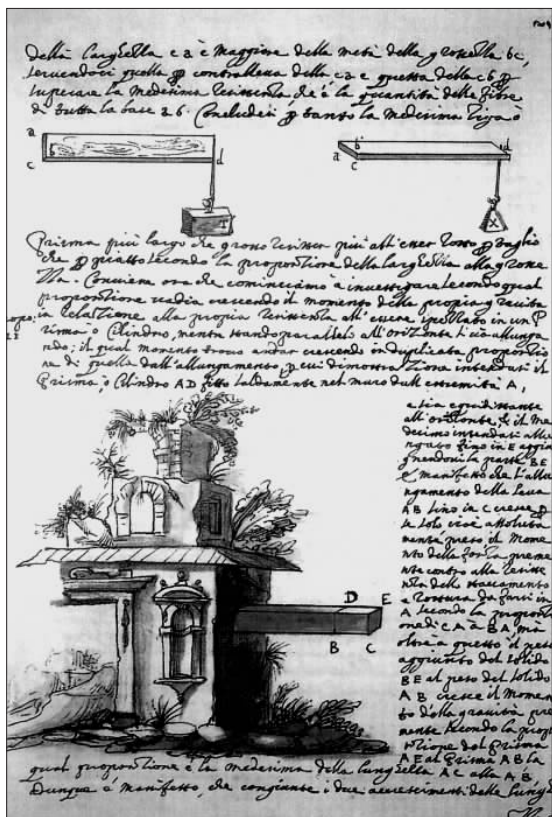 della larghezza ca è maggiore della metà della grossezza bc,
servendoci quella p contralleva della ca e questa della cb p
superare la medesima resistenza, che è la quantità delle fibre
di tutta la base ab. Concludesi p tanto la medesima riga o
a
b
c
d
T
b
a
c
d
X
Prisma più largo che grosso resister più all'esser rotto p taglio
che p piatto secondo la proporzione della larghezza alla grossez
za. Conviene ora che cominciamo a investigare secondo qual
proporzione vadia crescendo il momento della propria gravità
in relazione alla propria resistenza all'essere spezzato in un P
risma o Cilindro, mentre stando parallelo all'Orizonte si va allunga
ndo; il qual momento trovo andar crescendo in duplicata proporzio
ne di quella dell'allungamento, p cui dimostrazione intendasi il
Prisma, o Cilindro AD fitto saldamente nel muro dall'estremità A,
e sia equidistante
all'orizonte, & il me
desimo intendasi allu
ngato sino in E aggiu
gnendovi la parte BE
è manifesto che l'allu
ngamento della leva
AB sino in C cresce p
se solo cioè assoluta
mente preso il Mome
nto della forza preme
nte contro alla resiste
nza dello staccamento
e rottura da farsi in
A secondo la proporzi
one di CA à BA, mà
oltre a questo il peso
aggiunto del solido
BE al peso del solido
AB cresce il momen
to della gravità pre
mente secondo la propo
rzione del Prisma
AE al Prisma AB la
D
E
B
C
qual proporzione è la medesima della lunghezza AC alla AB,
Dunque è manifesto, che congiunte i due accrescimenti delle lungh